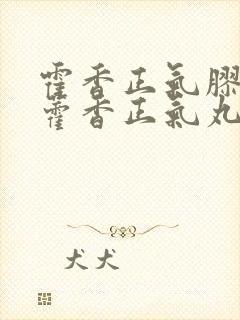 霍香正氣膠
霍香正氣丸
犬犬